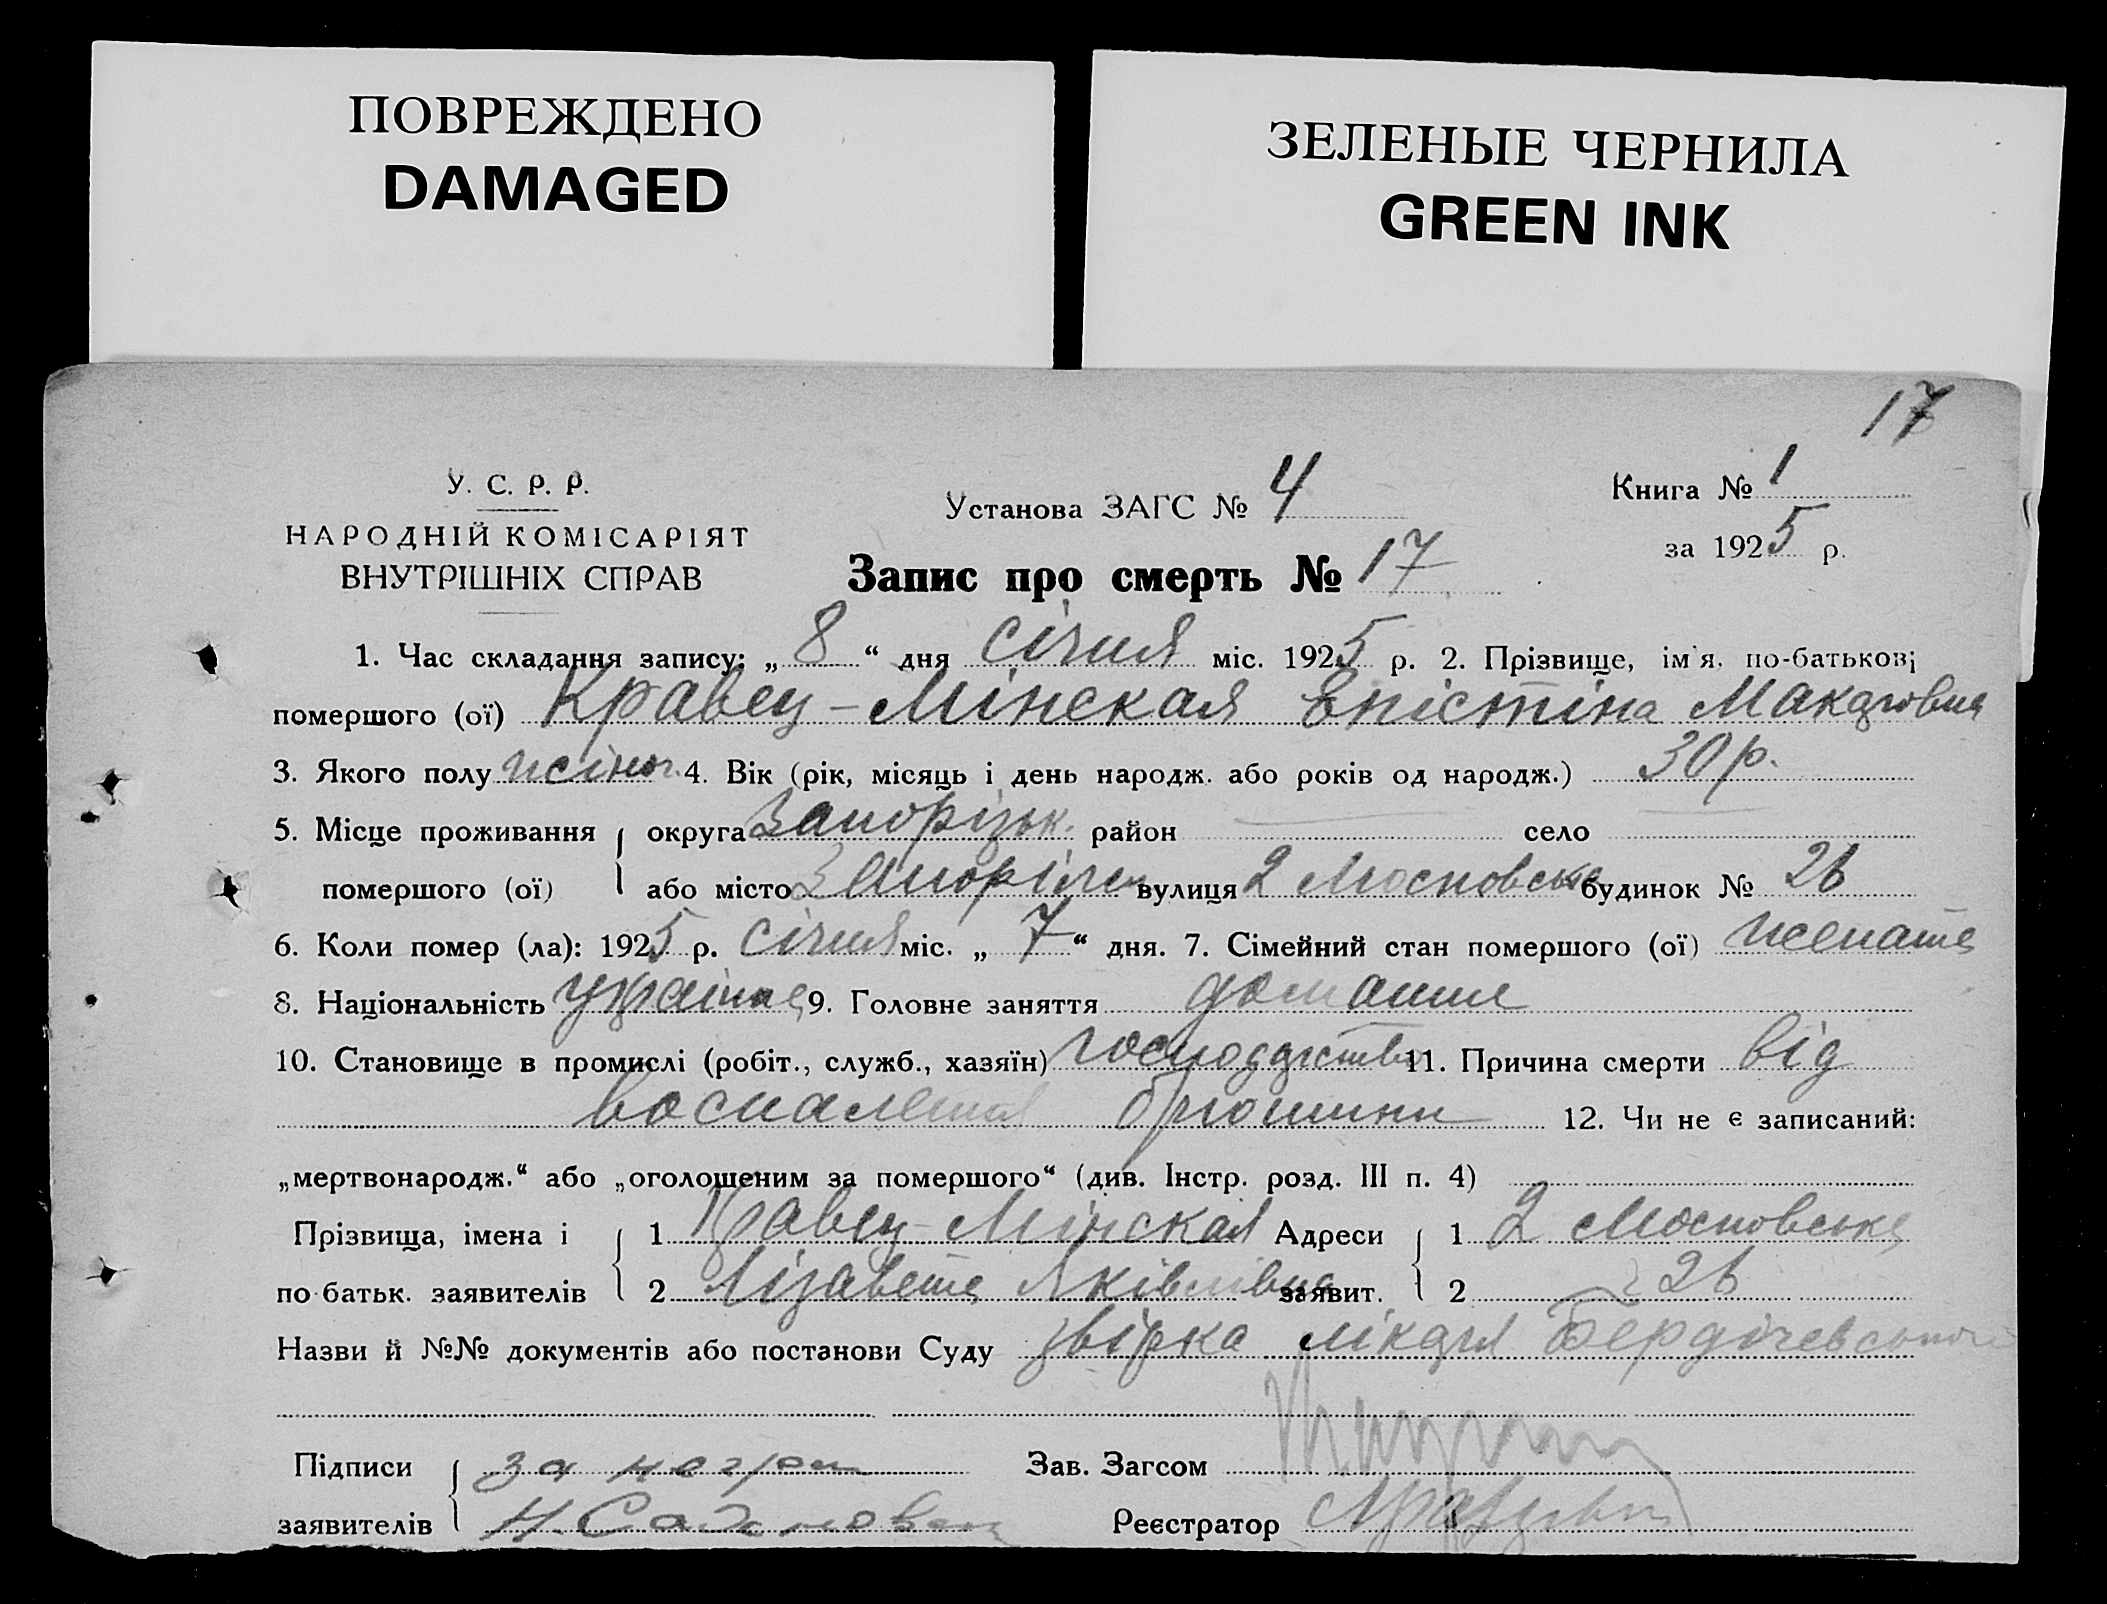 ПОВРЕЖДЕНО
DAMAGED
ЗЕЛЕНЫЕ ЧЕРНИЛА
GREEN INK
17
У. С. Р. Р.
НАРОДНІЙ КОМІСАРІЯТ
ВНУТРІШНІХ СПРАВ
Установа ЗАГС № 4
Книга № 1
за 1925 р.
Запис про смерть № 17
1. Час складання запису: „ 8 “ дня січня міс. 1925 р. 2. Прізвище, ім'я, по-батькові
помершого (ої) Кравец-Мінская Макаровна
3. Якого полу жіноч. 4. Вік (рік, місяць і день народж. або років од народж.) 30 р.
5. Місце проживання { округа Запорізьк. район — село —
помершого (ої) або місто вулиця 2 Московська будинок № 26
6. Коли помер (ла): 1925 р. січня міс. „ 7 “ дня. 7. Сімейний стан помершого (ої) жената
8. Національність україн 9. Головне заняття домашнє
10. Становище в промислі (робіт., служб., хазяїн) господарство 11. Причина смерти від
воспаления брюшини 12. Чи не є записаний:
„мертвонародж.“ або „оголошеним за помершого“ (див. Інстр. розд. III п. 4)
Прізвища, імена і { 1 Кравец-Мінская Адреси { 1 2 Московська
по-батьк. заявителів 2 Лізавета Яківлівна заявит. 2 26
Назви й №№ документів або постанови Суду лікаря Бердічевського
Підписи { за неграм
заявителів Н.
Зав. Загсом
Реєстратор